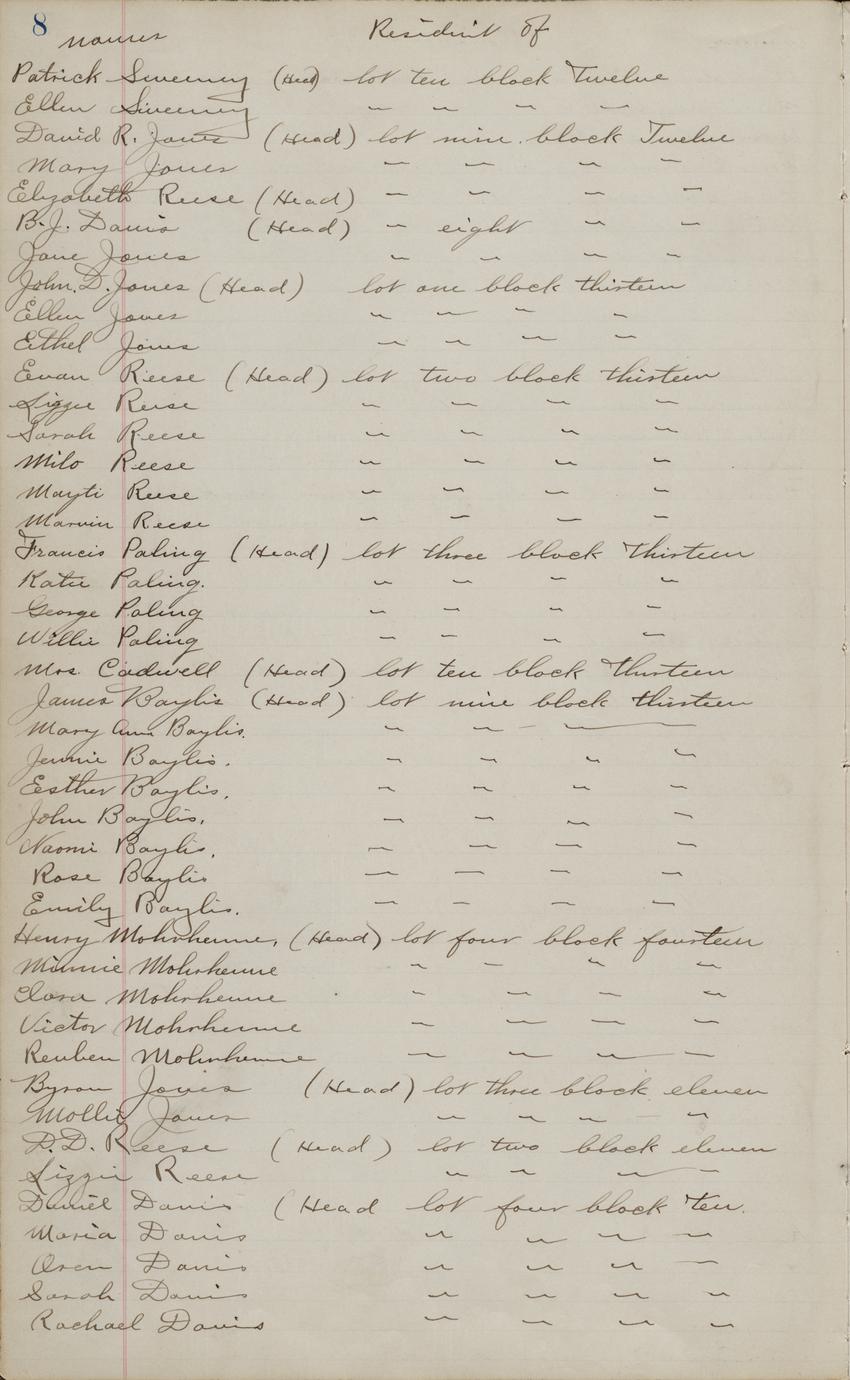 8 names Resident of
Patrick Sweeney (Head) lot ten block Twelve
Ellen Sweeney " " " "
David R. Jones (Head) lot nine block Twelve
Mary Jones " " " "
Elizabeth Reese (Head) " " " "
B. J. Davis (Head) " eight " "
Jane Jones " " " "
John. D. Jones (Head) lot one block thirteen
Ellen Jones " " " "
Ethel Jones " " " "
Evan Reese (Head) lot two block thirteen
Lizzie Reese " " " "
Sarah Reese " " " "
Milo Reese " " " "
Mayti Reese " " " "
Marvin Reese " " " "
Francis Paling (Head) lot three block Thirteen
Katie Paling. " " " "
George Paling " " " "
Willie Paling " " " "
Mrs. Cadwell (Head) lot ten block Thirteen
James Baylis (Head) lot nine block thirteen
Mary Ann Baylis. " " " "
Jennie Baylis. " " " "
Esther Baylis. " " " "
John Baylis. " " " "
Naomi Baylis. " " " "
Rose Baylis " " " "
Emily Baylis. " " " "
Henry Mohrhenne, (Head) lot four block fourteen
Minnie Mohrhenne " " " "
Clara Mohrhenne " " " "
Victor Mohrhenne " " " "
Reuben Mohrhenne " " " "
Byron Jones (Head) lot three block eleven
Mollie Jones " " " "
D. D. Reese (Head) lot two block eleven
Lizzie Reese " " " "
Daniel Davis (Head lot four block ten.
Maria Davis " " " "
Oren Davis " " " "
Sarah Davis " " " "
Rachael Davis " " " "